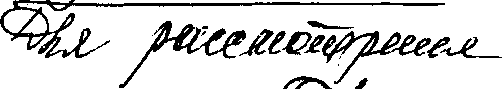 Для рассмотрения